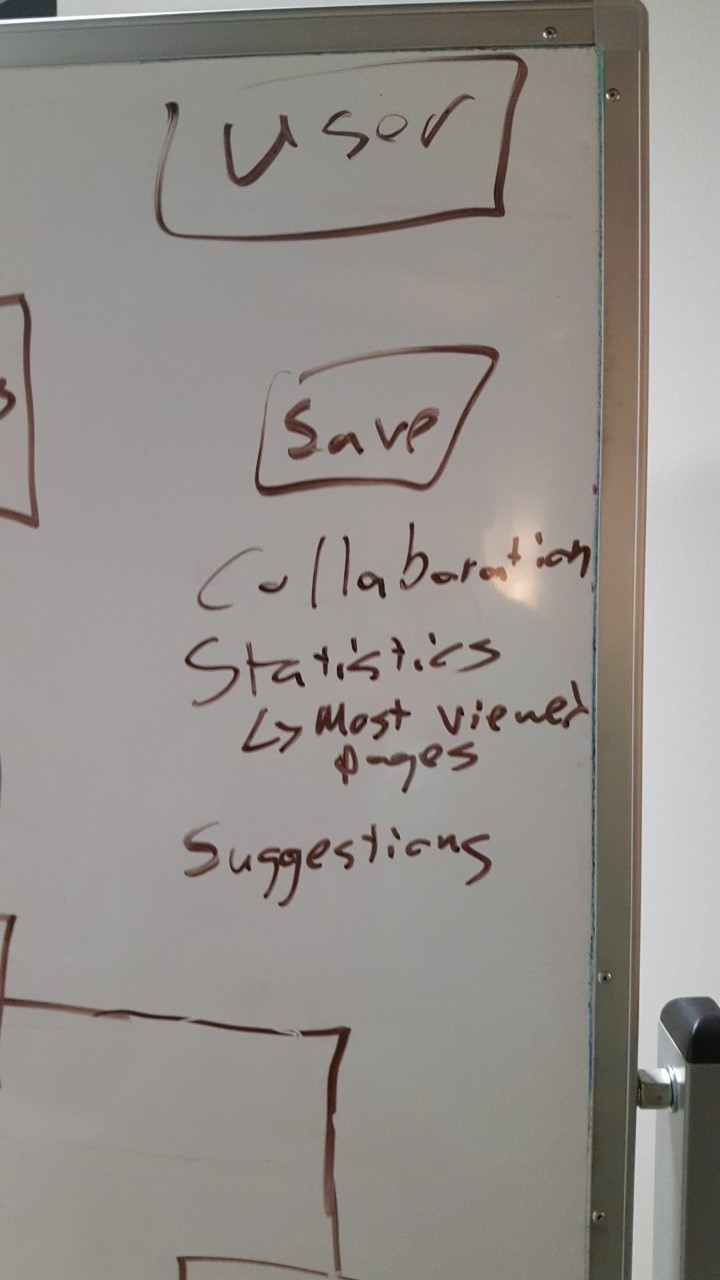 User
s
Save
Collaboration
Statistics
↳ Most viewed
pages
Suggestions